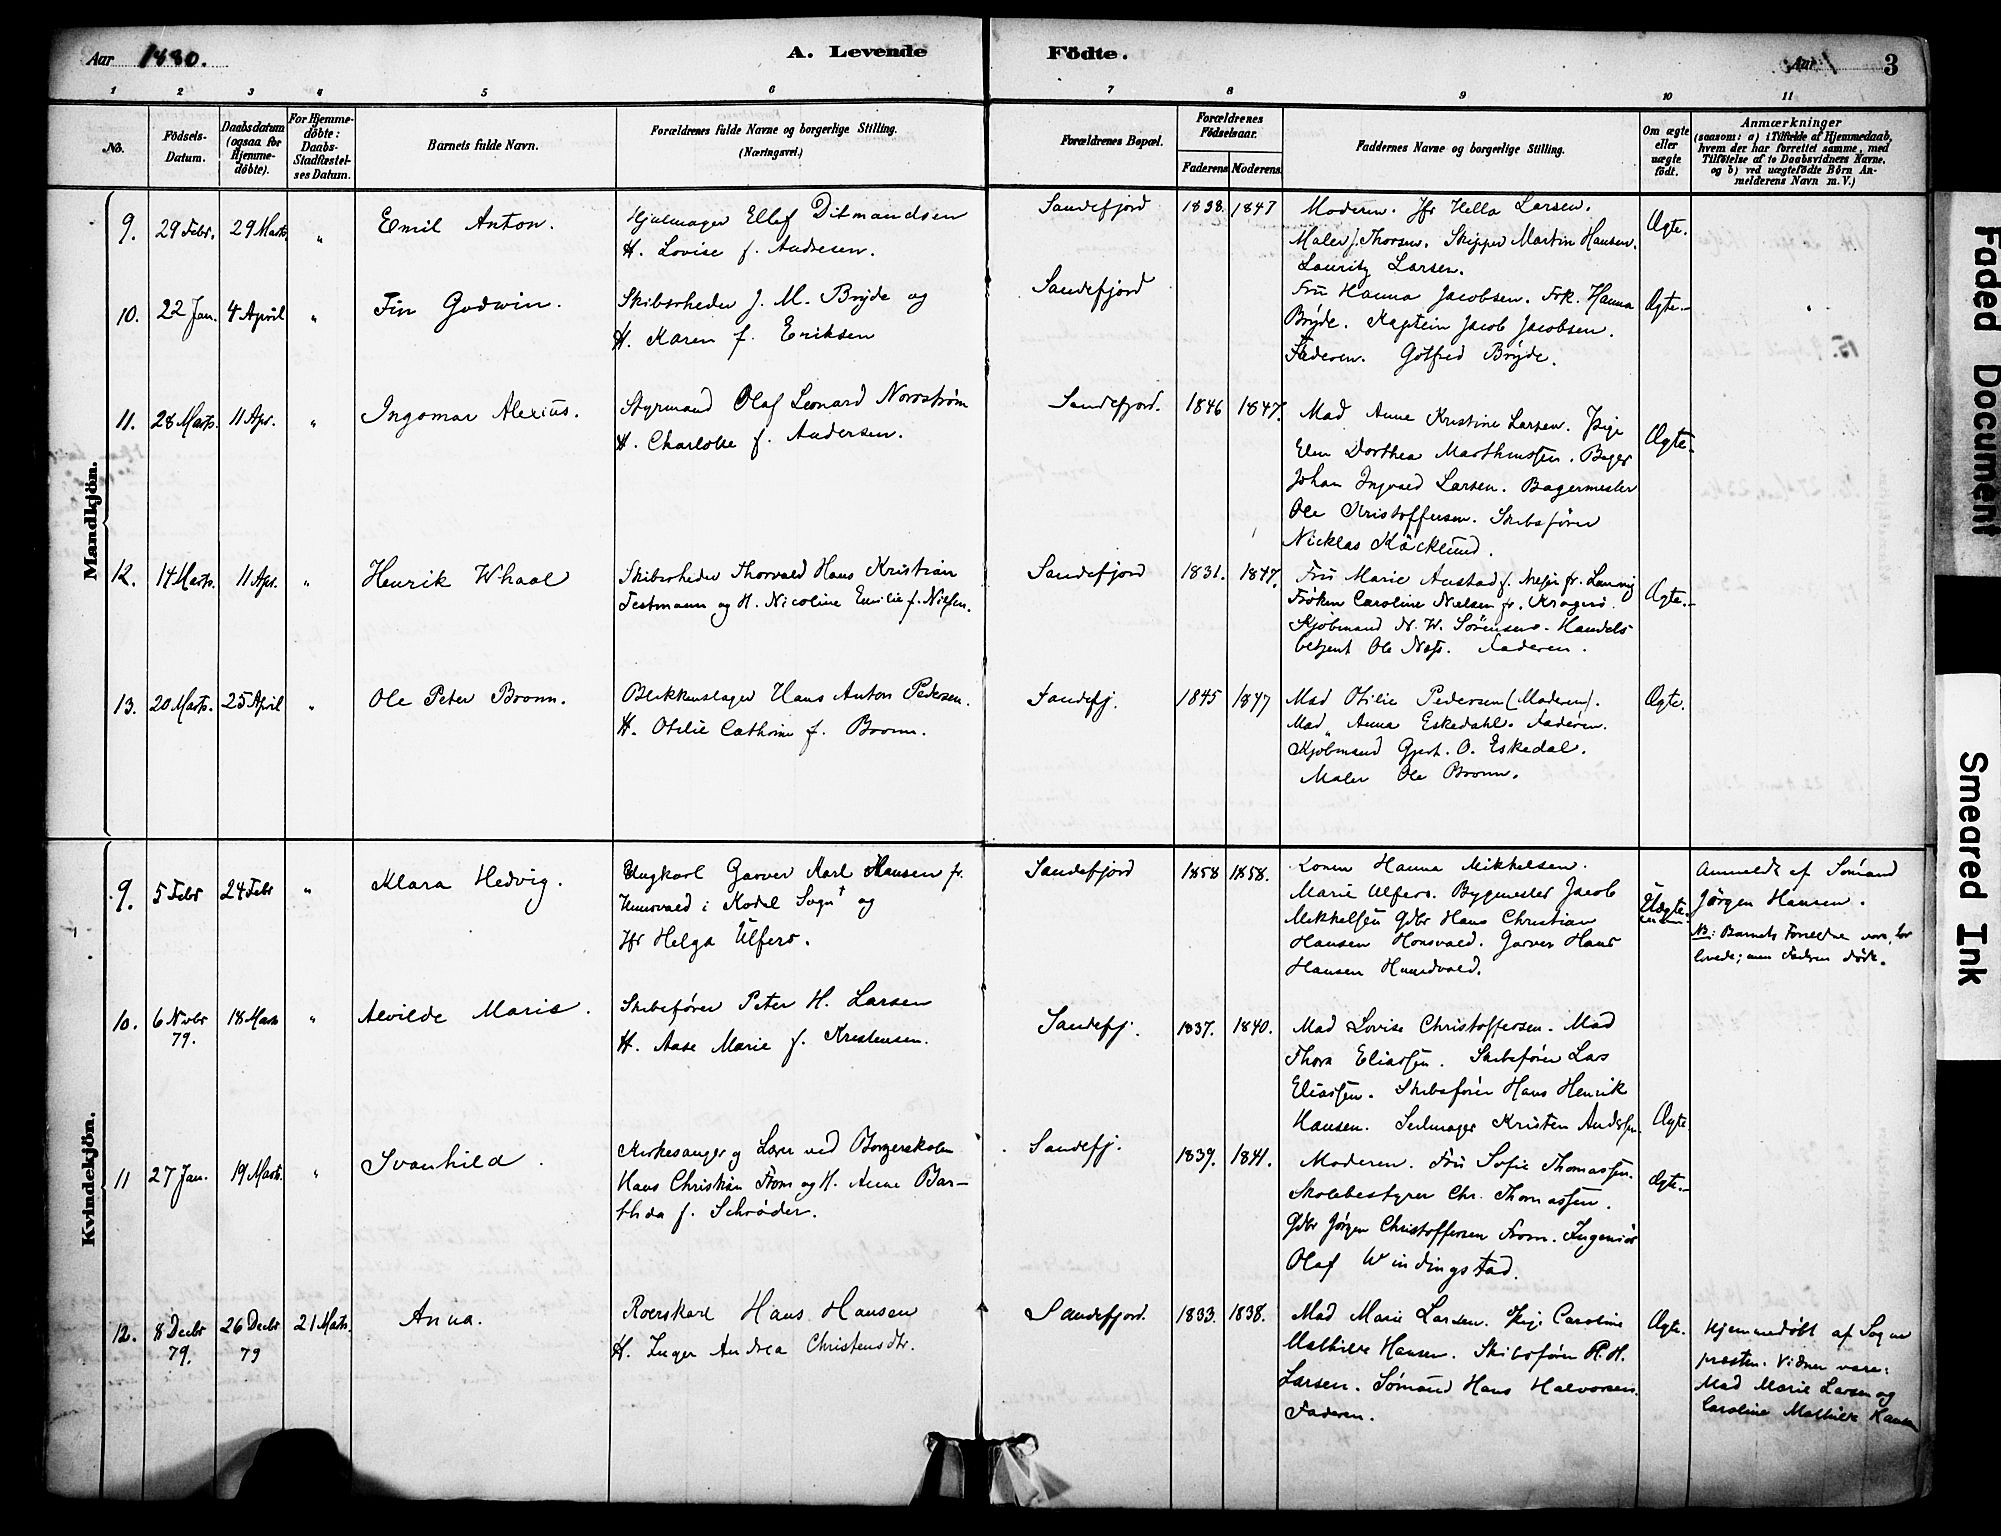 Aar 1880.
A. Levende Födte.
Aar 3
1 2 3 4 5 6 7 8 9 10 11
No.
Födsels-Datum.
Daabsdatum (ogsaa for Hjemmedöbte).
For Hjemmedöbte: Daabs-Stadfæstelses Datum.
Barnets fulde Navn.
Forældrenes fulde Navne og borgerlige Stilling.
(Næringsvei.)
Forældrenes Bopæl.
Forældrenes Födselsaar.
Faderens Moderens.
Faddernes Navne og borgerlige Stilling.
Om ægte eller uægte födt.
Anmærkninger
(saasom: a) i Tilfælde af Hjemmedaab,
hvem der har forrettet samme, med
Tilföielse af to Daabsvidners Navne.
og b) ved uægtefödte Börn An-
melderens Navn m. V.)
Mandkjön.
9. 29 Febr. 29 Marts. " Emil Anton.
Hjulmager Ellef Ditmandsen
H. Lovise f. Andresen.
Sandefjord 1838 1847
Moderen. Jfr Hella Larsen.
Maler J. Thorsen. Skipper Martin Hansen.
Lauritz Larsen.
Ægte.
10. 22 Jan. 4 April " Fin Godwin.
Skibsrheder J. M. Bryde og
H. Karen f. Eriksen
Sandefjord
Fru Hanna Jacobsen. Frk. Hanna
Bryde. Kaptein Jacob Jacobsen.
Faderen. Gotfred Bryde.
Ægte.
11. 28 Marts. 11 Apr. " Ingomar Alexius.
Styrmand Olaf Leonard Norström
H. Charlotte f. Andersen.
Sandefjord. 1846 1847.
Mad Anne Kristine Larsen. Pige
Elen Dorthea Marthinssen. Bager
Johan Ingvald Larsen. Bagermester
Ole Kristoffersen. Skibsfører
Nicklas Käcklund.
Ægte.
12. 14 Marts. 11 Apr. " Henrik Whaal
Skibsrheder Thorvald Hans Kristian
Testmann og H. Nicoline Emilie f. Nielsen.
Sandefjord 1831. 1847.
Fru Marie Anstad f. fr. Laurvig
Frøken Caroline Nielsen fr. Kragerö.
Kjøbmand N. W. Sörensen. Handels
betjent Ole Næss. Faderen.
Ægte.
13. 20 Marts. 25 April " Ole Peter Bronn.
Blikkenslager Hans Anton Pedersen.
H. Otilie Cathrine f. Bronn.
Sandefj. 1845 1847
Mad Otilie Pedersen (Moderen).
Mad Anna Eskedahl. Faderen.
Kjøbmand Gjert. O. Eskedal.
Maler Ole Bronn.
Ægte.
Kvindekjön.
9. 5 Febr 24 Febr " Klara Hedvig.
Ungkarl Garver Karl Hansen fr.
Hunsvald i Kodal Sogn † og
Jfr Helga Ulfers.
Sandefjord 1858 1858.
Konen Hanna Mikkelsen.
Marie Ulfers. Bygmester Jacob
Mikkelsen Gdbr Hans Christian
Hansen Honsvald. Garver Hans
Hansen Hundvald.
Uægte.
Anmeldt af Sømand
Jørgen Hansen.
NB: Barnets Forældre vare for
lovede; men Faderen døde.
10. 6 Novbr 79. 18 Marts " Alvilde Marie.
Skibsfører Peter H. Larsen
H. Aase Marie f. Kristensen.
Sandefj. 1837. 1840.
Mad Lovise Christoffersen. Mad
Thora Eliassen. Skibsfører Lars
Eliassen. Skibsfører Hans Henrik
Hansen. Seilmager Kristen Andersen
Ægte
11 27 Jan. 19 Marts. " Svanhild.
Kirkesanger og Lærer ved Borgerskolen
Hans Christian From og H. Anne Bar-
thda f. Schrøder.
Sandefj. 1839. 1841.
Moderen. Fru Sofie Thomassen.
Skolebestyrer Chr. Thomassen.
Gdbr Jørgen Christoffersen From. Ingeniør
Olaf Windingstad.
Ægte.
12. 8 Decbr 79. 26 Decbr 79 21 Marts. Anna.
Roerskarl Hans Hansen
H. Inger Andrea Christensdtr.
Sandefjord. 1833. 1838.
Mad Marie Larsen. Pige Caroline
Mathilde Hansen. Skibsfører H. H.
Larsen. Sømand Hans Halvorsen.
Faderen.
Ægte.
Hjemmedøbt af Sogne
præsten. Vidner vare:
Mad Marie Larsen og
Caroline Mathilde Hansen
Faded Document
Smeared Ink